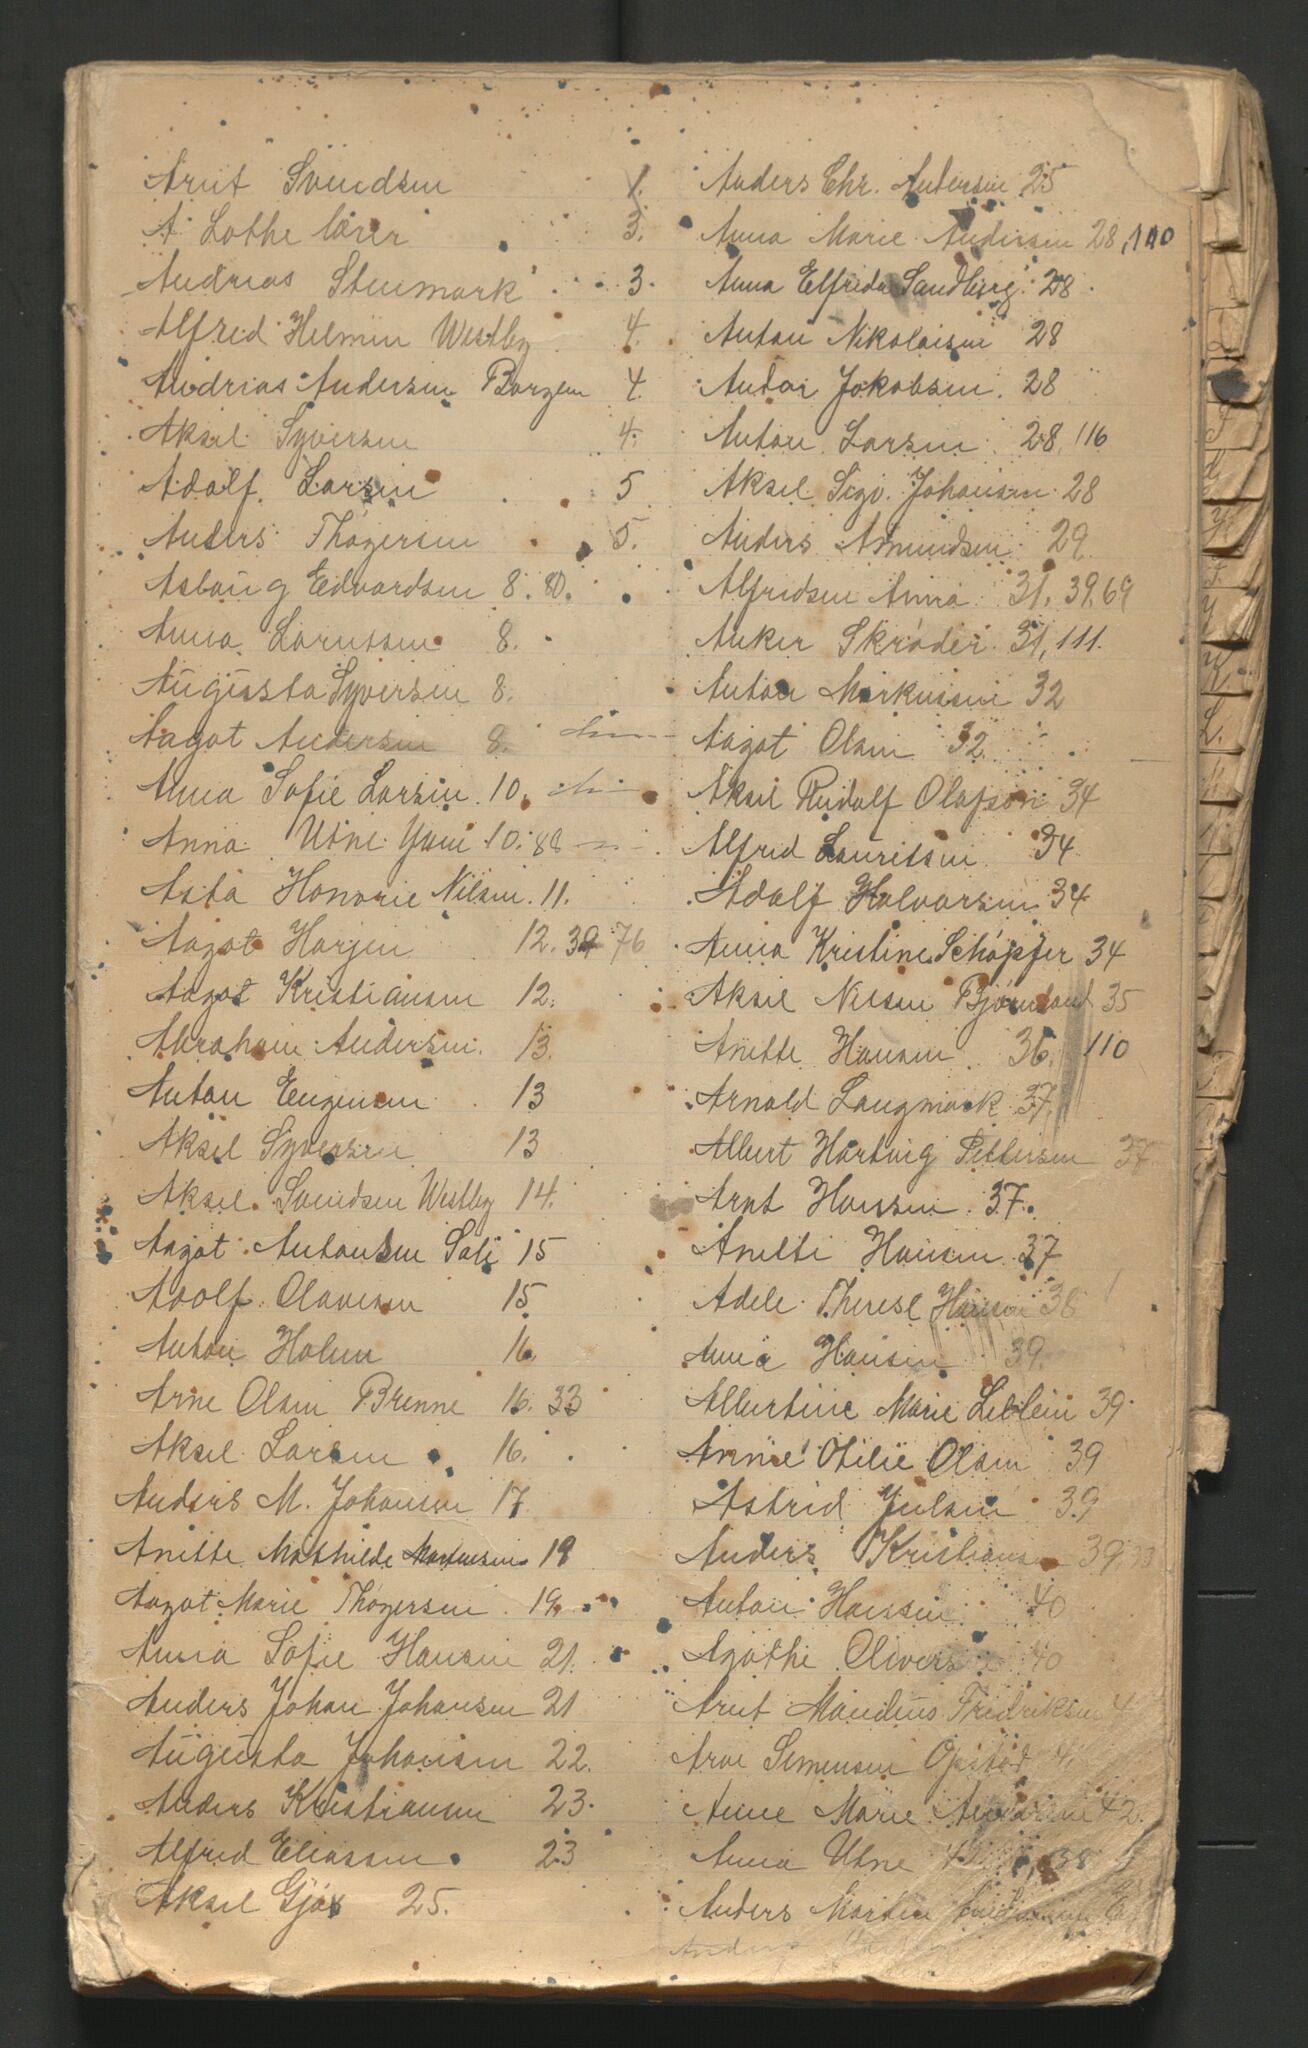 Arnt Svendsen 1.
A Lothe lærer 3.
Andreas Stenmark 3.
Alfred Helmin Westby 4.
Andrias Andersen Borgen 4
Aksel Syversen 4.
Adolf Larsen 5
Anders Thøgersen 5.
Aslaug Edvardsen 8. 80.
Anna Larntsen 8.
Augusta Syversen 8.
Aagot Andersen 8.
Anna Sofie Larsen 10.
Anna Utne Yven 10. 88
Asta Honorie Nilsen. 11.
Aagot Harjen 12. 39 76
Aagot Kristiansen 12.
Abraham Andersen. 13.
Anton Eugensen 13
Aksel Syversen 13
Aksel Svendsen Westby 14.
Aagot Antonsen Sali 15
Adolf Olavesen 15.
Anton Holm 16.
Arne Olsen Brenne 16. 33
Aksel Larsen 16.
Anders M. Johansen 17.
Anette Mathilde Martinsen 19
Aagot Marie Thøgersen 19.
Anna Sofie Hansen 21.
Anders Johan Johansen 21
Augusta Johansen 22.
Anders Kristiansen 23.
Alfred Eliassen. 23
Aksel Gjøs 25.
Anders Chr. Andersen 25
Anna Marie Andersen 28, 100
Anna Elfrida Sandberg. 28.
Anton Nikolaisen 28
Andor Jakobsen. 28
Anton Larsen 28, 116
Aksel Sigv. Johansen 28
Anders Amundsen 29
Alfredsen Anna 31, 39, 69
Anker Skrøder 31, 111.
Anton Markussen 32
Aagot Olsen 32
Aksel Rudolf Olafson 34
Alfred Lauritsen 34
Adolf Halvorsen 34
Anna Kristine Schøpfer 34
Aksel Nilsen Bjørnland 35
Anette Hansen 36. 110
Arnold Langmark 37.
Albert Hartvig Pettersen 37
Arnt Hanssen. 37.
Anette Hansen 37
Adele Therese Hansen 38
Anna Hansen 39.
Albertine Marie Leblein 39.
Annie Otilie Olsen 39
Astrid Julsen 39
Anders Kristiansen 39,
Anton Hanssen 40
Agathe Olivers 40
Arnt Mandius Fredriksen 4
Arve Simensen Opstad
Anne Marie 42.
Anna Utne 42
Anders Martin
Anders